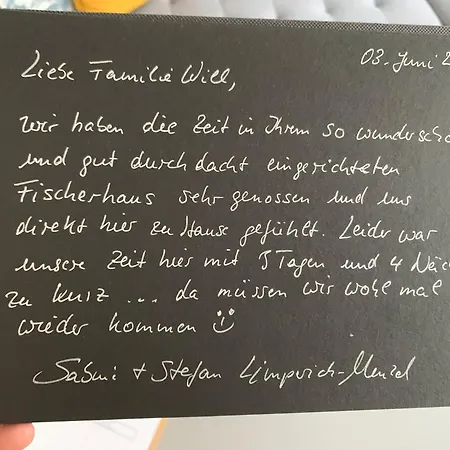 03. Juni 2
Liebe Familie Will,
wir haben die Zeit in Ihrem so wundersch
und gut durchdacht eingerichteten
Fischerhaus sehr genossen und uns
direkt hier zu Hause gefühlt. Leider war
unsere Zeit hier mit 5 Tagen und 4 Näch
zu kurz ... da müssen wir wohl mal
wieder kommen
Stefan